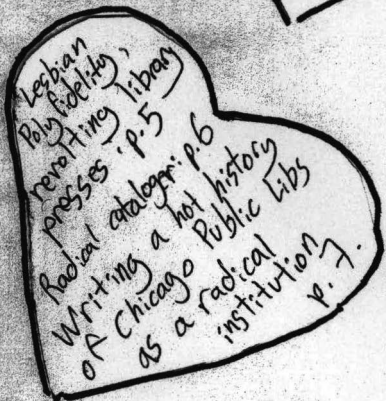 Lesbian
Polyfidelity,
revolting library
presses: p.5
Radical cataloger: p.6
Writing a hot history
of Chicago Public Libs
as a radical
institution
p. 7.